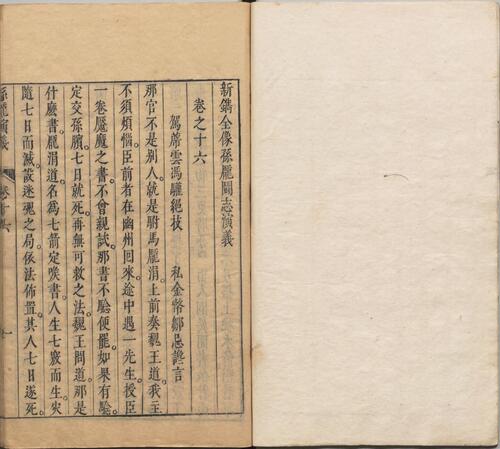 新鐫全像孫龎鬪志演義
卷之十六
駕蓆雲馮驩絕技　私金幣鄒忌讒言
那官不是別人。就是駙馬龎涓。上前奏魏王道。我主
不須煩惱。臣前者在幽州回來。途中遇一先生授臣
一卷魘魔之書。不曾親試。那書不驗便罷。如果有驗。
定交孫臏七日就死。再無可救之法。魏王問道。那是
什麽書。龎涓道。名為七箭定喉書。人生七竅而生。灾
隨七日而滅。設迷魂之局。依法佈置。其人七日遂死。
孫龎演義　卷十六　一